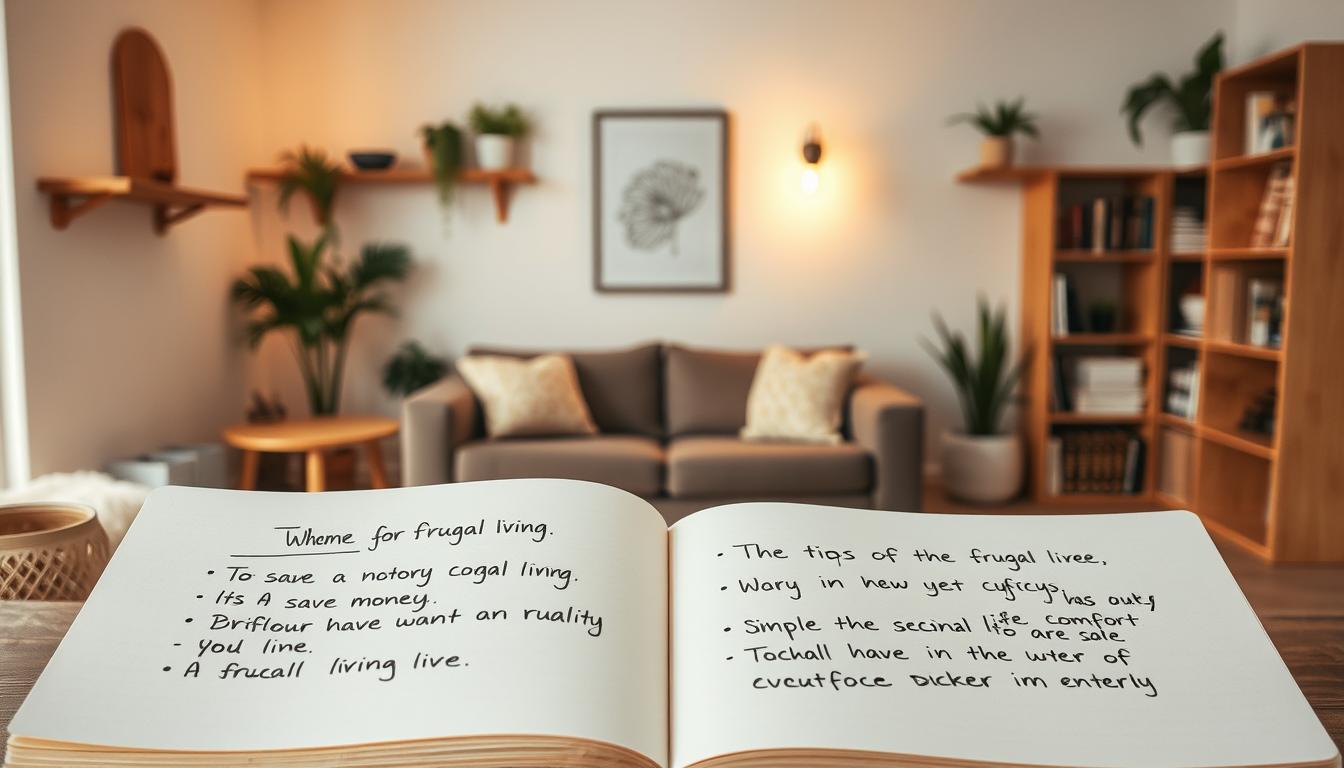 Wheme for frugal living.
• To save a notory cogal living.
• Its A save money.
• Briflour have want an ruality
- you line.
• A frucall living live.
• The tips of the frugal livee,
• Wory in new yet cyfrcys, has outs
• Simple the secinal life comfort
to are sale
• Tochall have in the wter of
evcutfoce Dicker im enterly